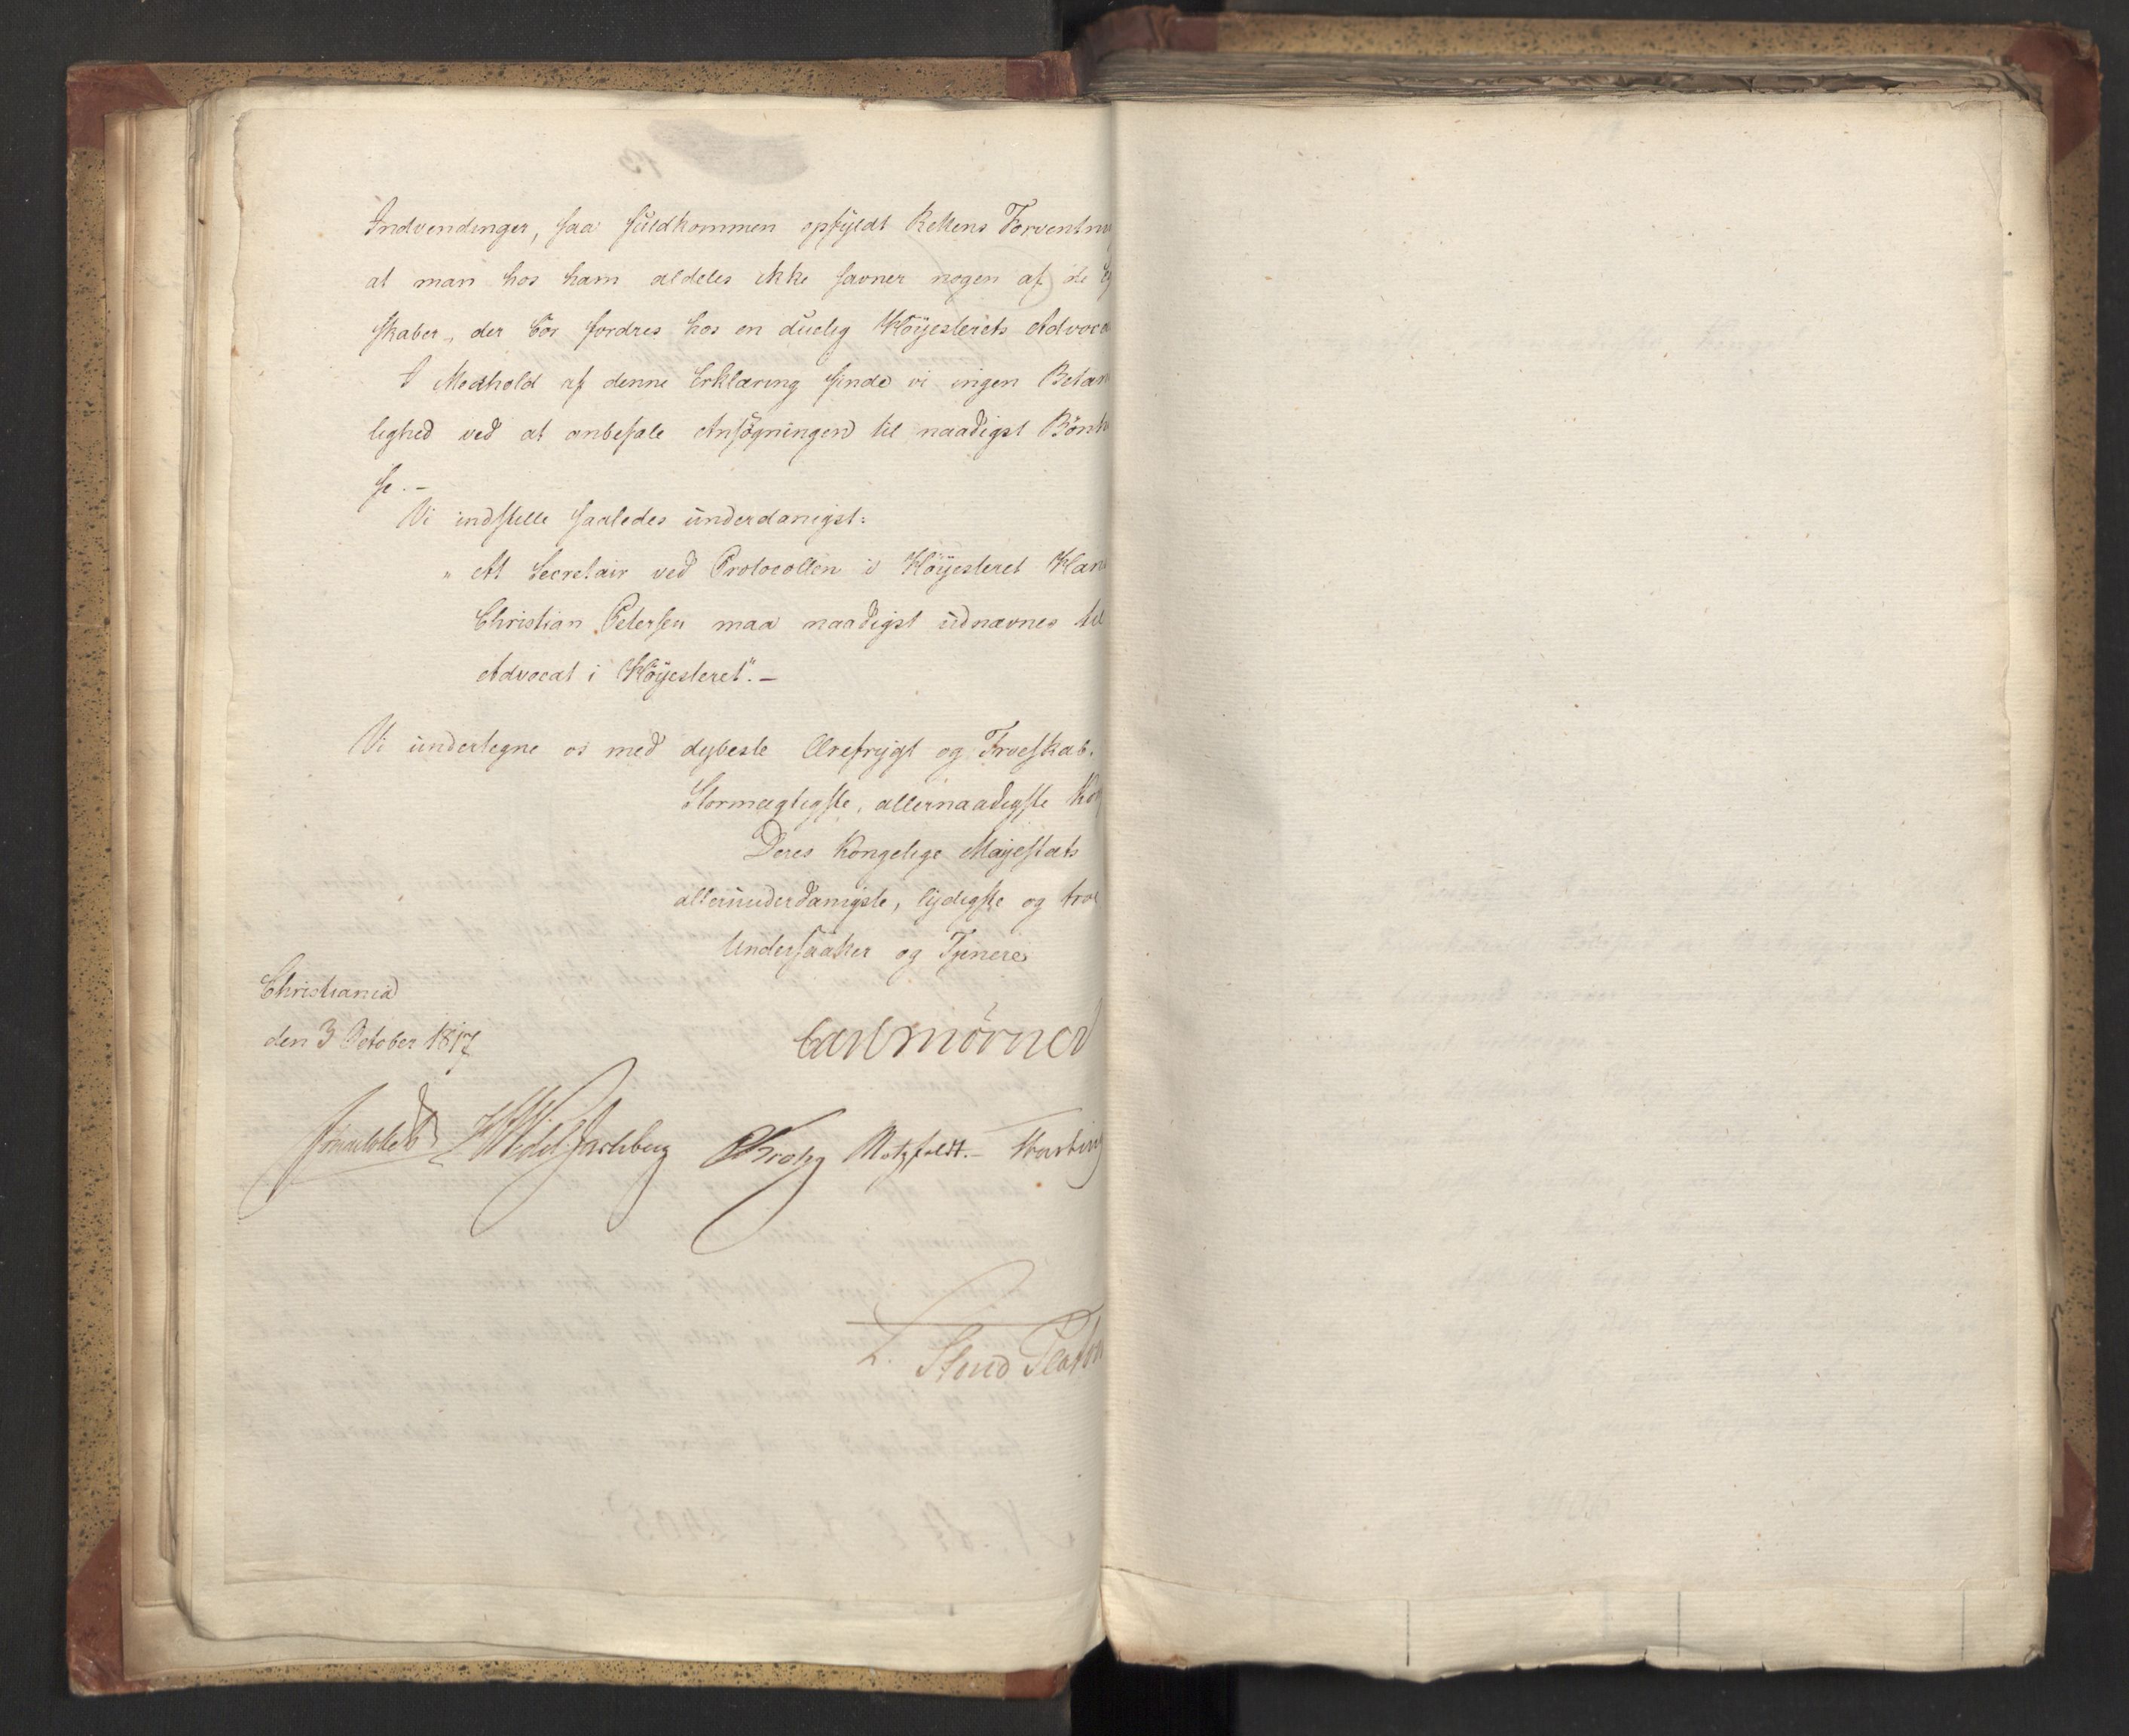 Indvendinger, saa fuldkommen opfyldt Rettens Forventn
at man hos ham aldeles ikke savner nogen af de
skaber, der bör fordres hos en duelig Höyesterets Advoca
I Medhold af denne Erklæring finde vi ingen Betæn
lighed ved at anbefale Ansögningen til naadigst Bönh
se. –
Vi indstille saaledes underdanigst:
„ At Secretair ved Protocollen i Höyesteret Han
Christian Petersen maa naadigst udnævnes til
Advocat i Höyesteret". –
Vi undertegne os med dybeste Ærefrygt og Troeskab.
Stormægtigste, allernaadigste Ko
Deres Kongelige Majestæts
allerunderdanigste, lydigste og troe
Undersaatter og Tjenere
Christiania
den 3 October 1817
Carl Mörner
HWedel Jarlsberg Krohg Motzfeldt. –
L.